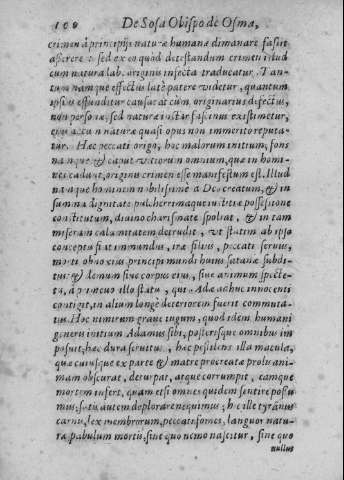 109 De Sosa Obispo de Osma,
crimen à principijs naturæ humanæ dimanare fas sit
asserere: sed ex eo quod detestandum crimen illud
cum natura lab. originis infecta traducatur. Tan-
tum namque effectus latè patere videtur, quantum
ipsius effunditur causa: at cum originarius defectus,
non personæ, sed naturæ instar existimetur,
eius natura quasi opus non immerito reputa-
tur. Hæc peccati origo, hoc malorum initium, fons
namque & caput vitiorum omnium, quæ in homi-
nes cadunt, originis crimen esse manifestum est. Illud
namque hominem nobilissimè à Deo creatum, & in
summa dignitate pulcherrimaque iustitiæ possessione
constitutum, diuino charismate spoliat, & in tam
miseram calamitatem detrudit, vt statim ab ipso
conceptu fiat immundus, iræ filius, peccati seruus,
morti obnoxius principi mundi huius satanæ subdi-
tus: & demum siue corpus eius, siue animum specte-
ts, à primæuo illo statu, qui Adæ adhuc innocenti
contigit, in alium longè deteriorem fuerit commuta-
tus. Hoc nimirum graue iugum, quod idem humani
generis initium Adamus sibi, posterisque omnibus im
posuit, hæc dura seruitus, hæc pestilens illa macula,
quæ cuiusque ex parte & matre procreatæ prolis ani-
mam obscurat, deturpat, atque corrumpit, eamque
mortem infert, quam etsi omnes quidem sentire possu-
mus, satis autem deplorare nequimus: hic ille tyrannus
carnis, lex membrorum, peccati fomes, languor natu-
ræ, pabulum mortis, sine quo nemo nascitur, sine quo
nullus